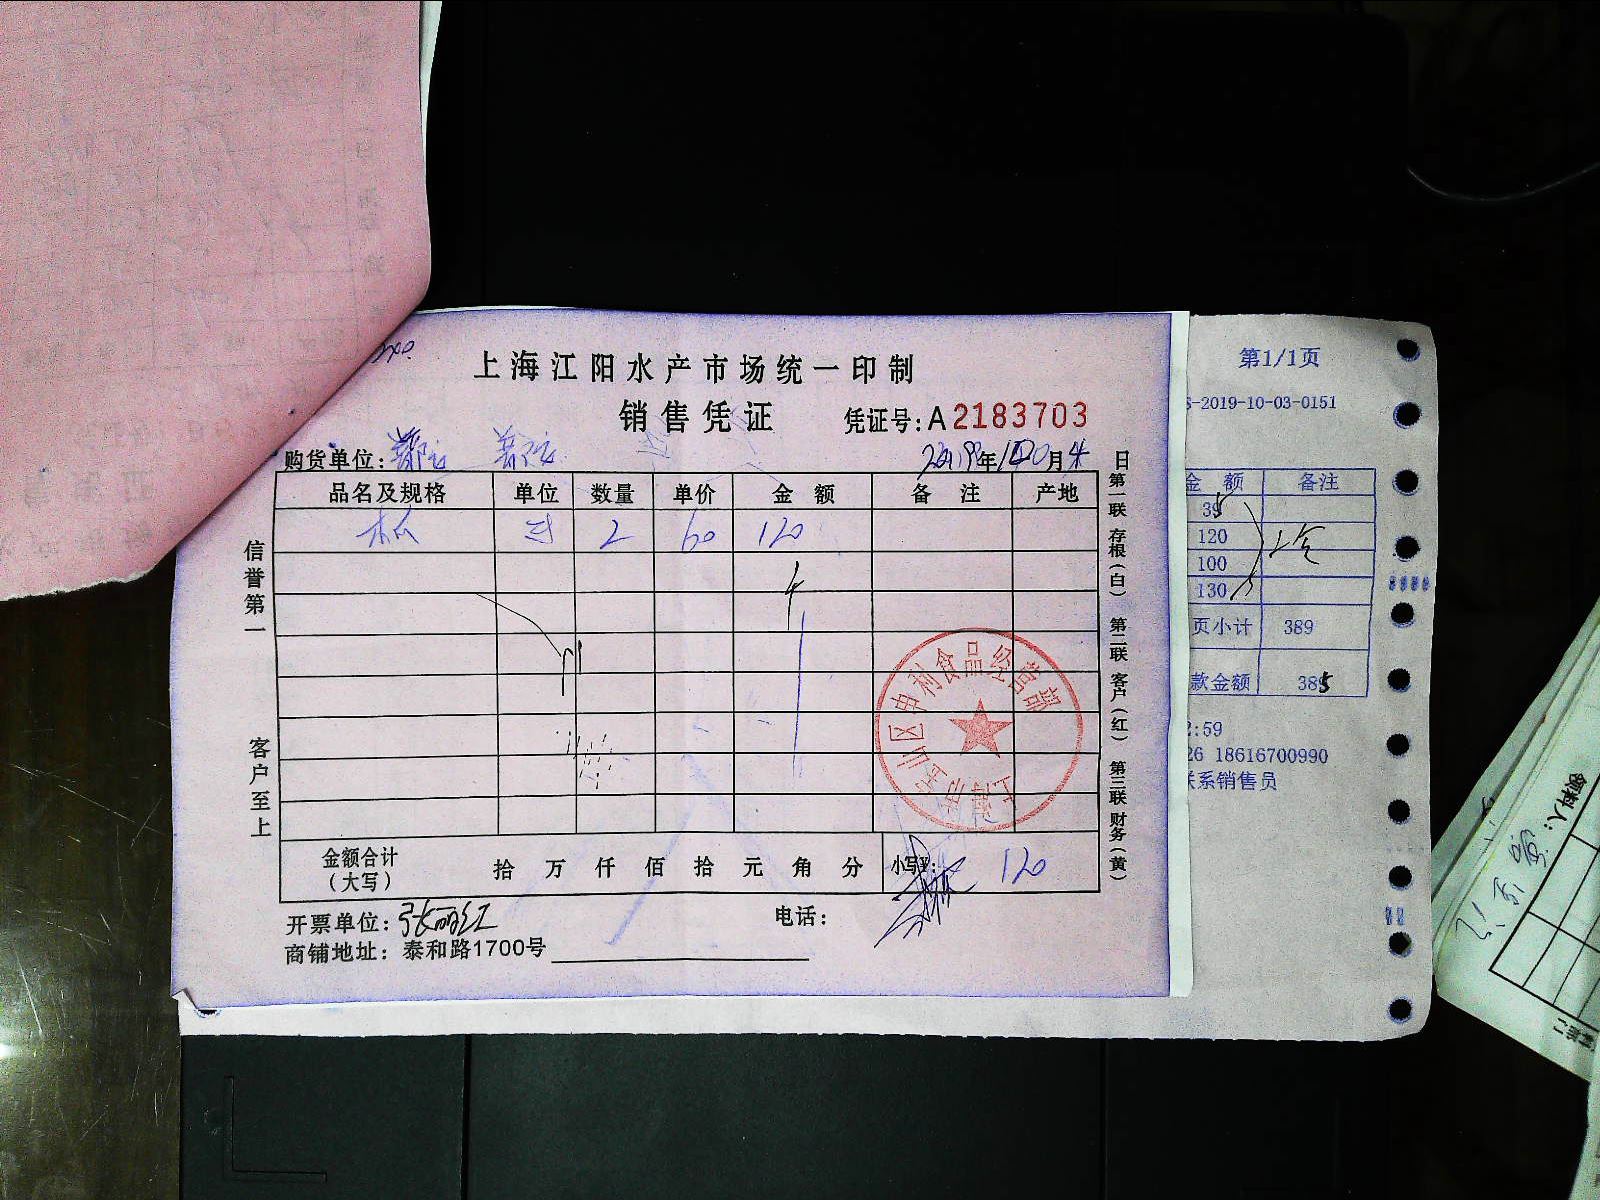 上海江阳水产市场统一印制
销售凭证 凭证号:A2183703
购货单位: 2019年10月4日
品名及规格 单位 数量 单价 金额 备注 产地
2 60 120
金额合计(大写) 拾 万 仟 佰 拾 元 角 分 小写¥: 120
开票单位:张丽红 电话:
商铺地址:泰和路1700号
信誉第一
客户至上
第一联 存根(白) 第二联 客户(红) 第三联 财务(黄)
上海市宝山区申利食品经营部
第1/1页
S-2019-10-03-0151
金额 备注
35
120
100
130
页小计 389
款金额 385
2:59
26 18616700990
联系销售员
领料人: